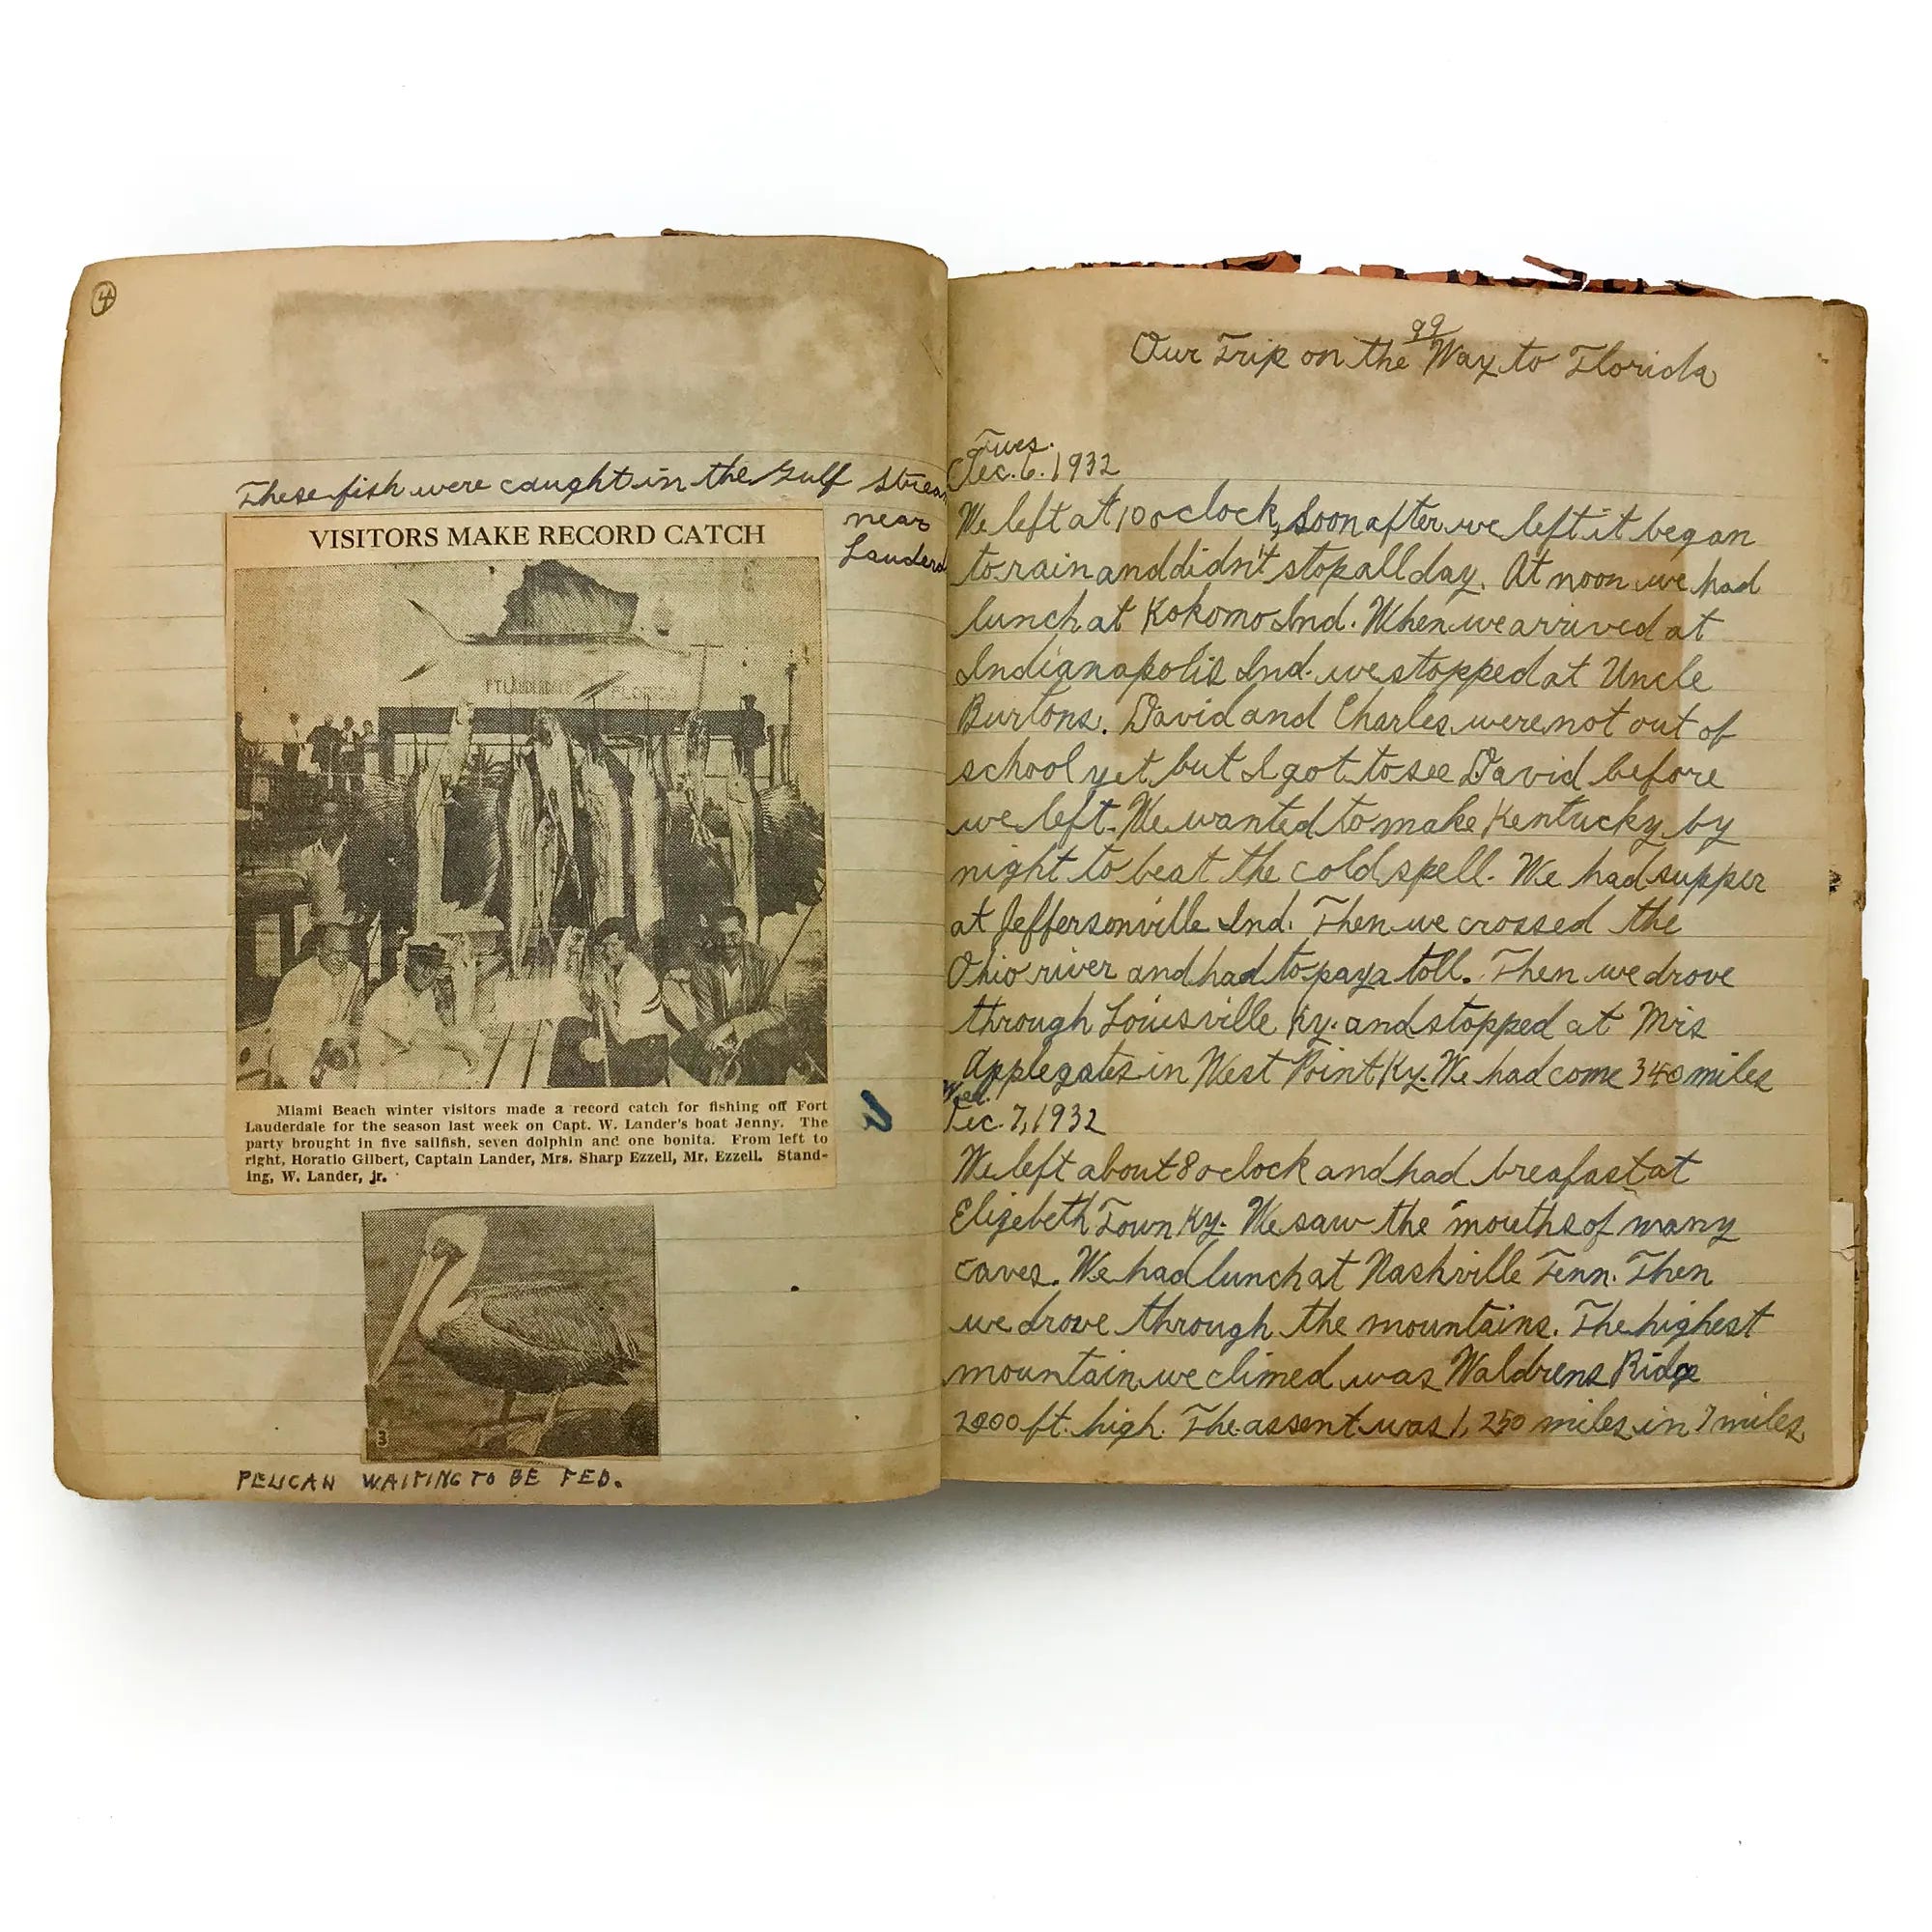 4
These fish were caught in the Gulf Strea
near
Lauderd
VISITORS MAKE RECORD CATCH
FT LAUDERDALE FLORIDA
Miami Beach winter visitors made a record catch for fishing off Fort
Lauderdale for the season last week on Capt. W. Lander's boat Jenny. The
party brought in five sailfish, seven dolphin and one bonita. From left to
right, Horatio Gilbert, Captain Lander, Mrs. Sharp Ezzell, Mr. Ezzell. Stand-
ing, W. Lander, jr.
3
PELICAN WAITING TO BE FED.
Our Trip on the Way to Florida
Tues.
Dec. 6. 1932
We left at 10 o clock, soon after we left it began
to rain and didn't stop all day. At noon we had
lunch at Kokomo Ind. When we arrived at
Indianapolis Ind. we stopped at Uncle
Burtons. David and Charles were not out of
school yet but I got to see David before
we left. We wanted to make Kentucky by
night to beat the cold spell. We had supper
at Jeffersonville Ind. Then we crossed the
Ohio river and had to pay a toll. Then we drove
through Louisville Ky. and stopped at Mrs
Applegates in West Point Ky. We had come 340 miles
Wed.
Dec. 7, 1932
We left about 8 o clock and had breafast at
Elizebeth Town Ky. We saw the mouths of many
caves. We had lunch at Nashville Tenn. Then
we drove through the mountains. The highest
mountain we climed was Waldrens Ridge
2000 ft. high. The assent was 1,250 miles in 7 miles.